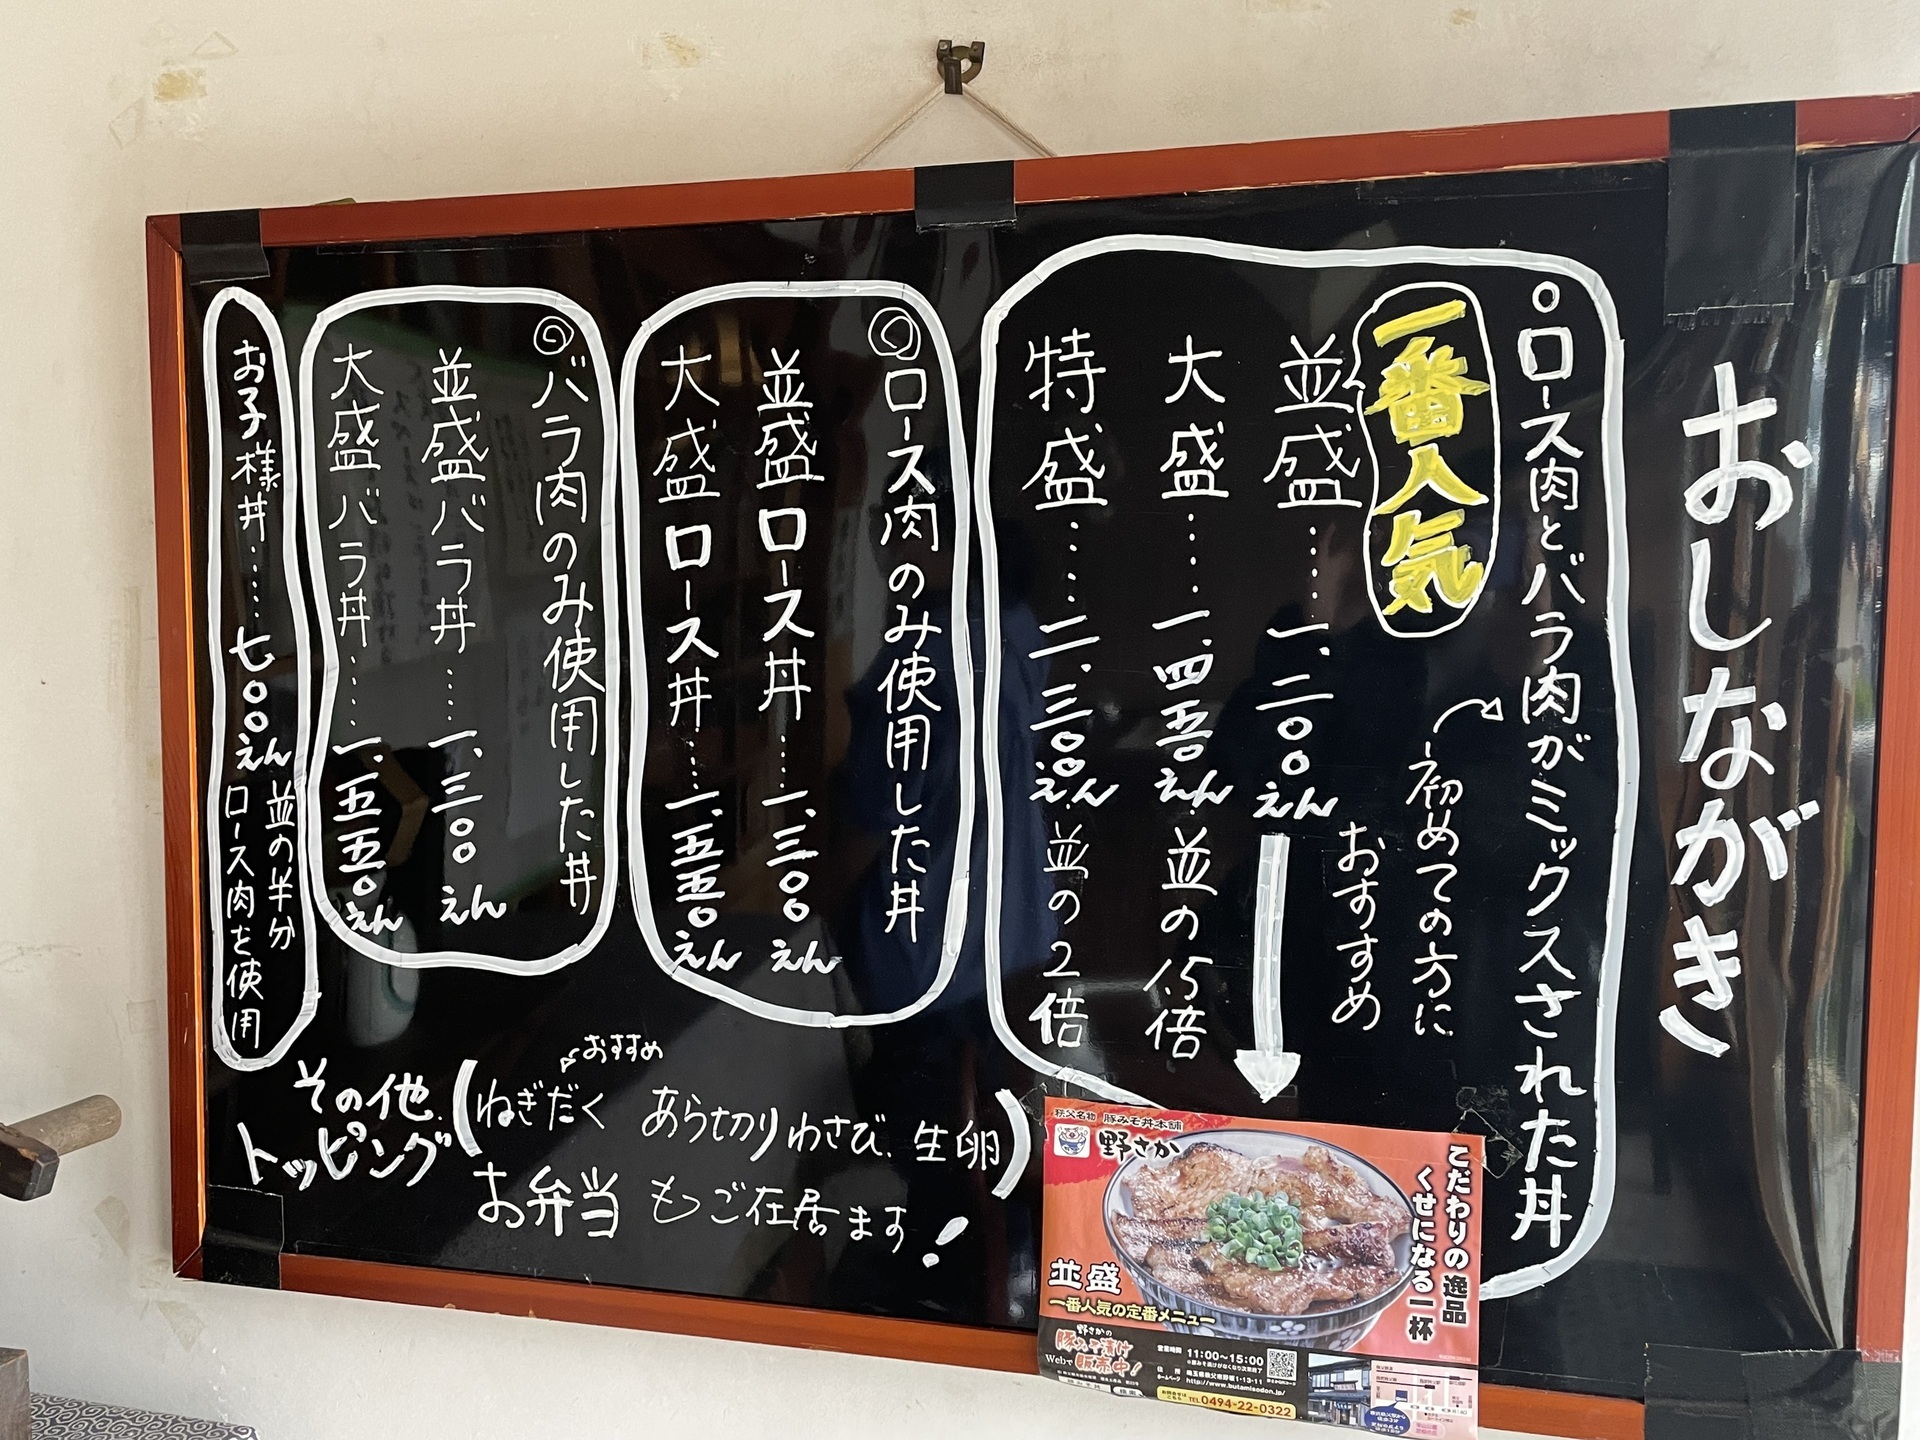 おしながき
○ロース肉とバラ肉がミックスされた丼
初めての方に
おすすめ
一番人気
並盛……一、二〇〇えん
大盛……一、四五〇えん 並の1.5倍
特盛……二、三〇〇えん 並の2倍
◎ロース肉のみ使用した丼
並盛ロース丼……一、三〇〇えん
大盛ロース丼……一、五五〇えん
◎バラ肉のみ使用した丼
並盛バラ丼……一、三〇〇えん
大盛バラ丼……一、五五〇えん
お子様丼……七〇〇えん
並の半分
ロース肉を使用
おすすめ
その他
トッピング
(ねぎだく あら切りわさび、生卵)
お弁当もご在居ます!
秩父名物 豚みそ丼本舗
野さか
こだわりの逸品
くせになる一杯
並盛
一番人気の定番メニュー
野さかの
豚みそ漬け
Webで販売中!
営業時間 11:00〜15:00
住所 埼玉県秩父市野坂1-13-11
ホームページ http://www.butamisodon.jp/
お問合せは
こちら TEL 0494-22-0322